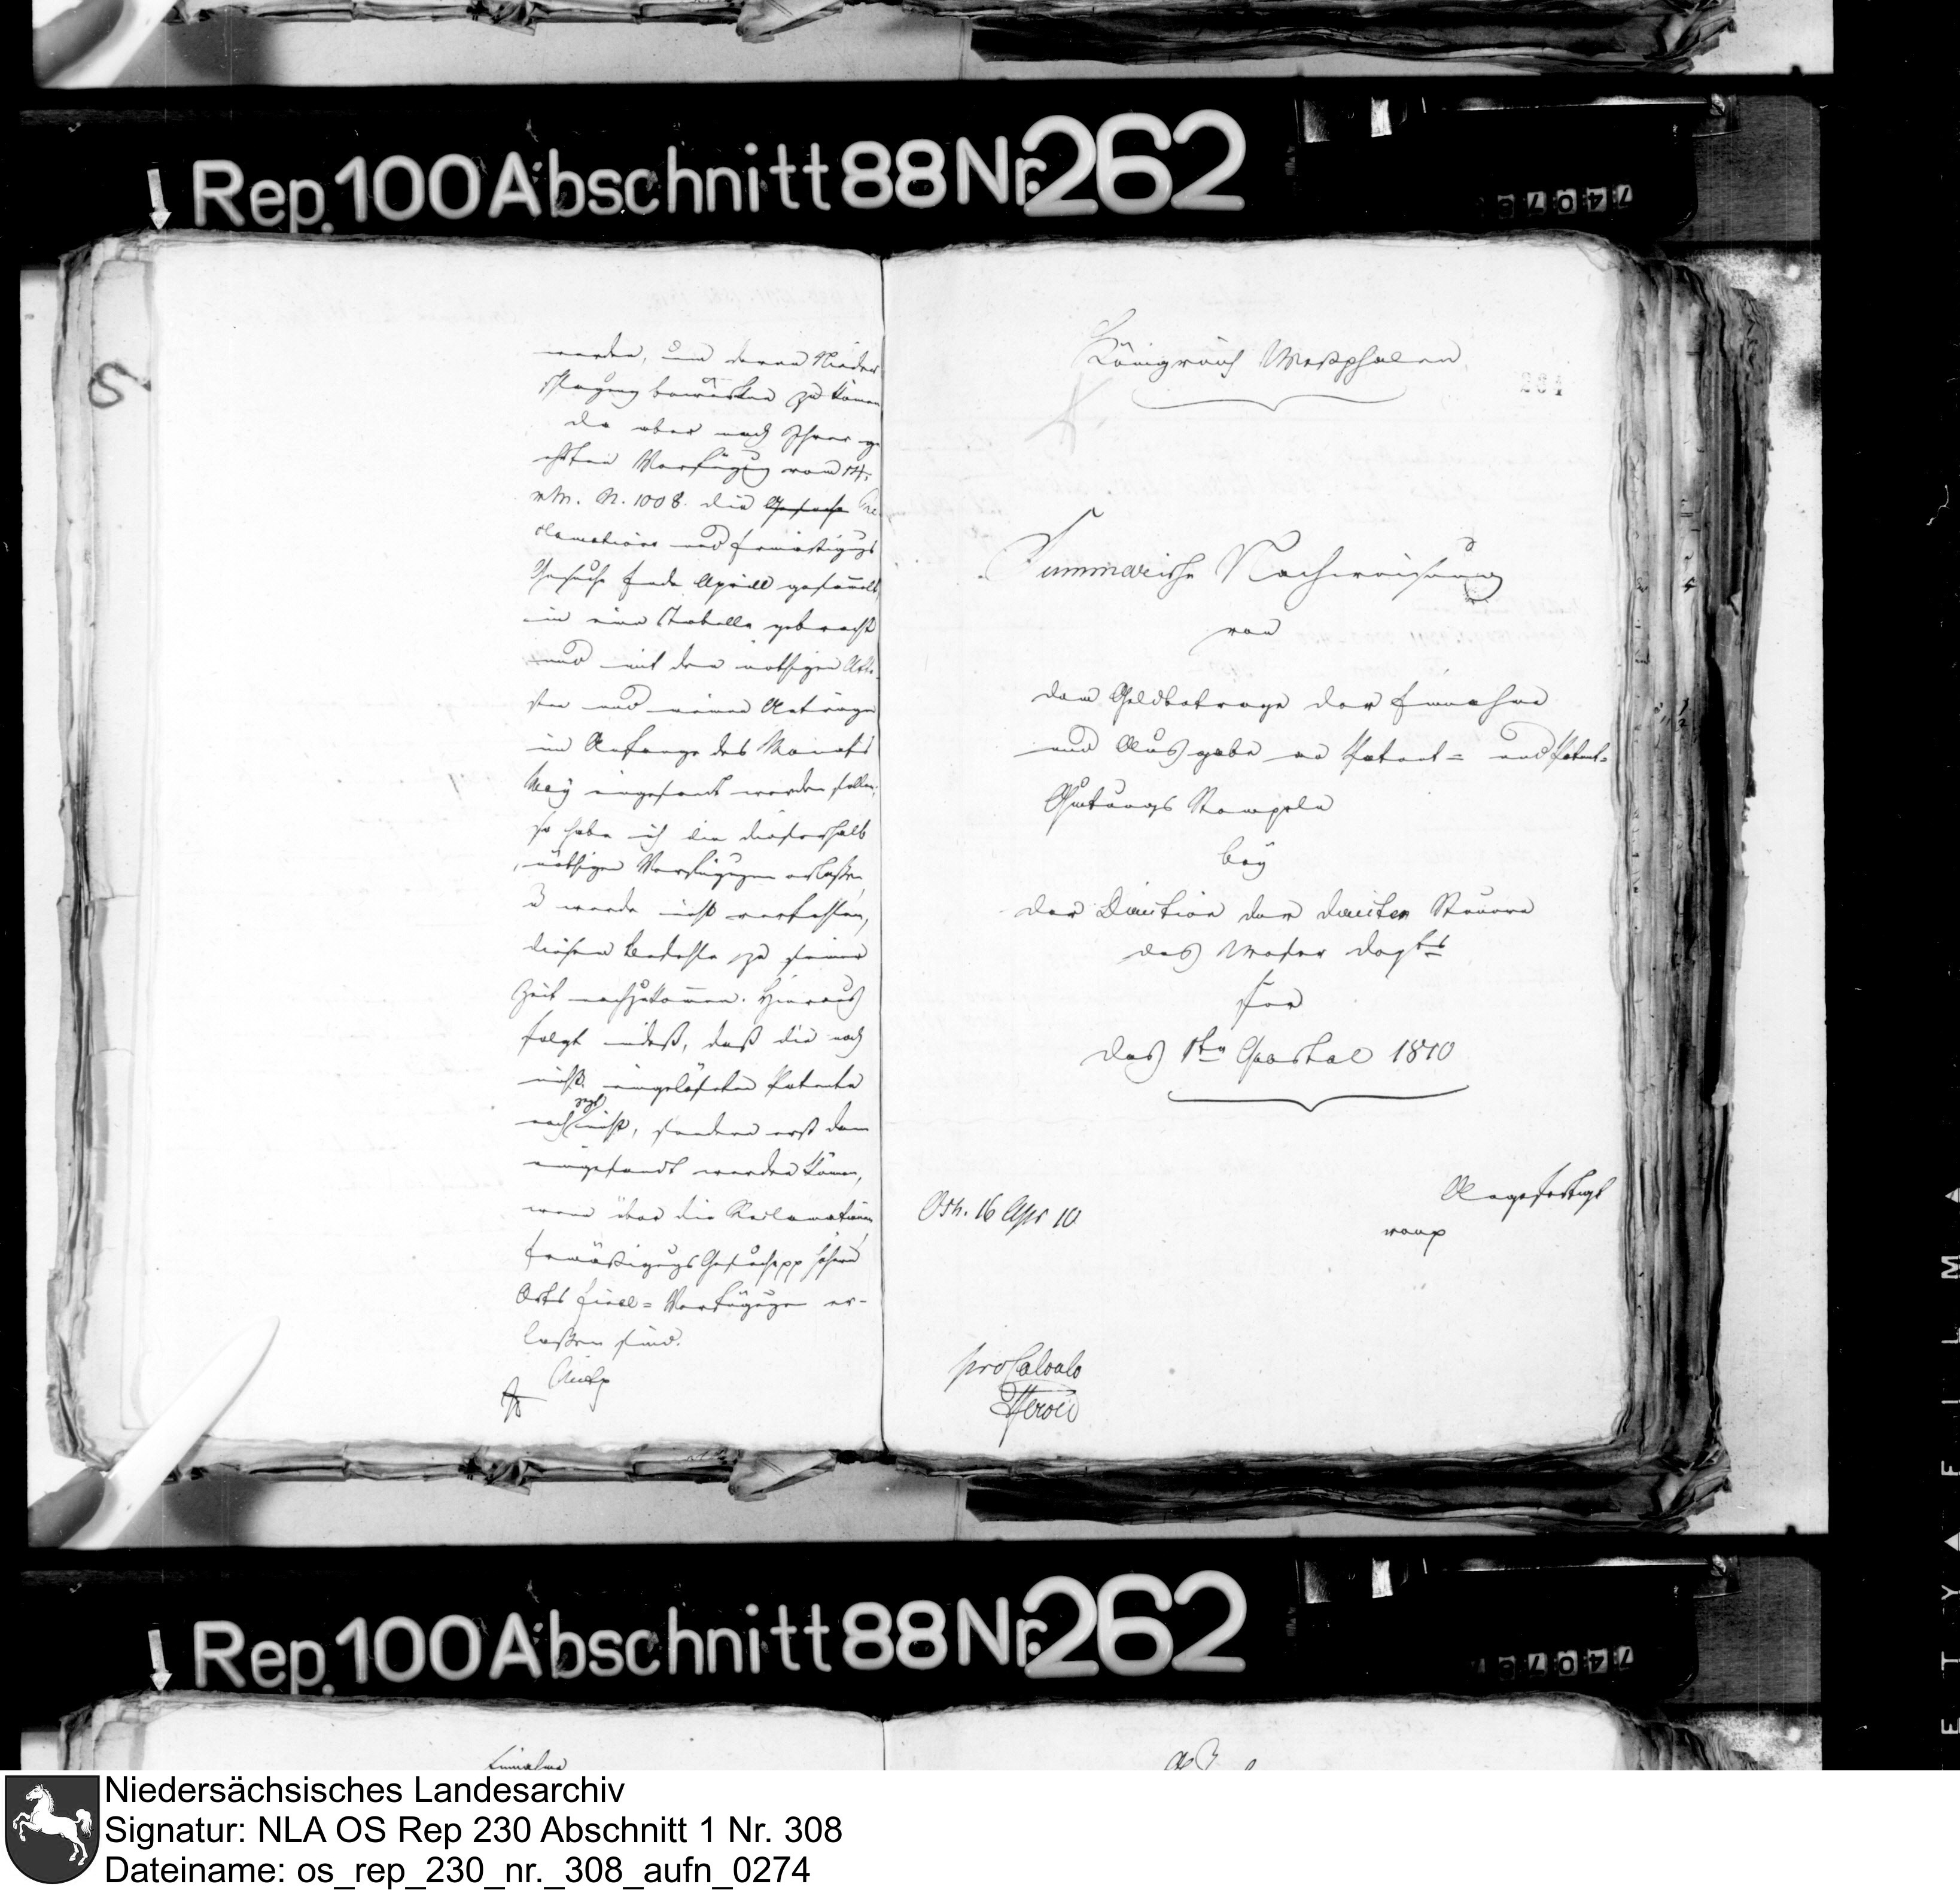 Rep. 100 Abschnitt 88 Nr. 262
werden, um deren Nieder
schlagung bewirken zu können
Da aber nach Ihrer ge
ehrten Verfügung vom 14.
v. M. N. 1008. die Gesuche Re
clamations und Ermäßigungs
Gesuche Ende Aprill gesammelt
in eine Tabelle gebracht
und mit den nöthigen Atte
sten und meinen Anträgen
im Anfange des Monats
May eingesandt werden sollen,
so habe ich die dieserhalb
nöthigen Verfügungen erlaßen,
u werde nicht verfehlen,
diesem Befehle zu seiner
Zeit nachzukommen. Hieraus
folgt indeß, daß die noch
nicht eingelöseten Patente
noch jezt nicht, sondern erst dann
eingesandt werden können,
wenn über die Reclamationen
Ermäßigungs Gesuche pp höhern
Orts final= Verfügungen er-
laßen sind.
Königreich Westphalen.
Summarische Nachweisung
von
dem Geldbetrage der Einnahme
und Ausgabe an Patent= und Patent=
Quitungs Stempeln
bey
der Direction der directen Steuern
des Weser Depts
für
das 1te Quartal 1810
Osn. 16 Apr 10
Angefertigt
pro Calculo
Rep. 100 Abschnitt 88 Nr. 262
Einnahme
Niedersächsisches Landesarchiv
Signatur: NLA OS Rep 230 Abschnitt 1 Nr. 308
Dateiname: os_rep_230_nr._308_aufn_0274